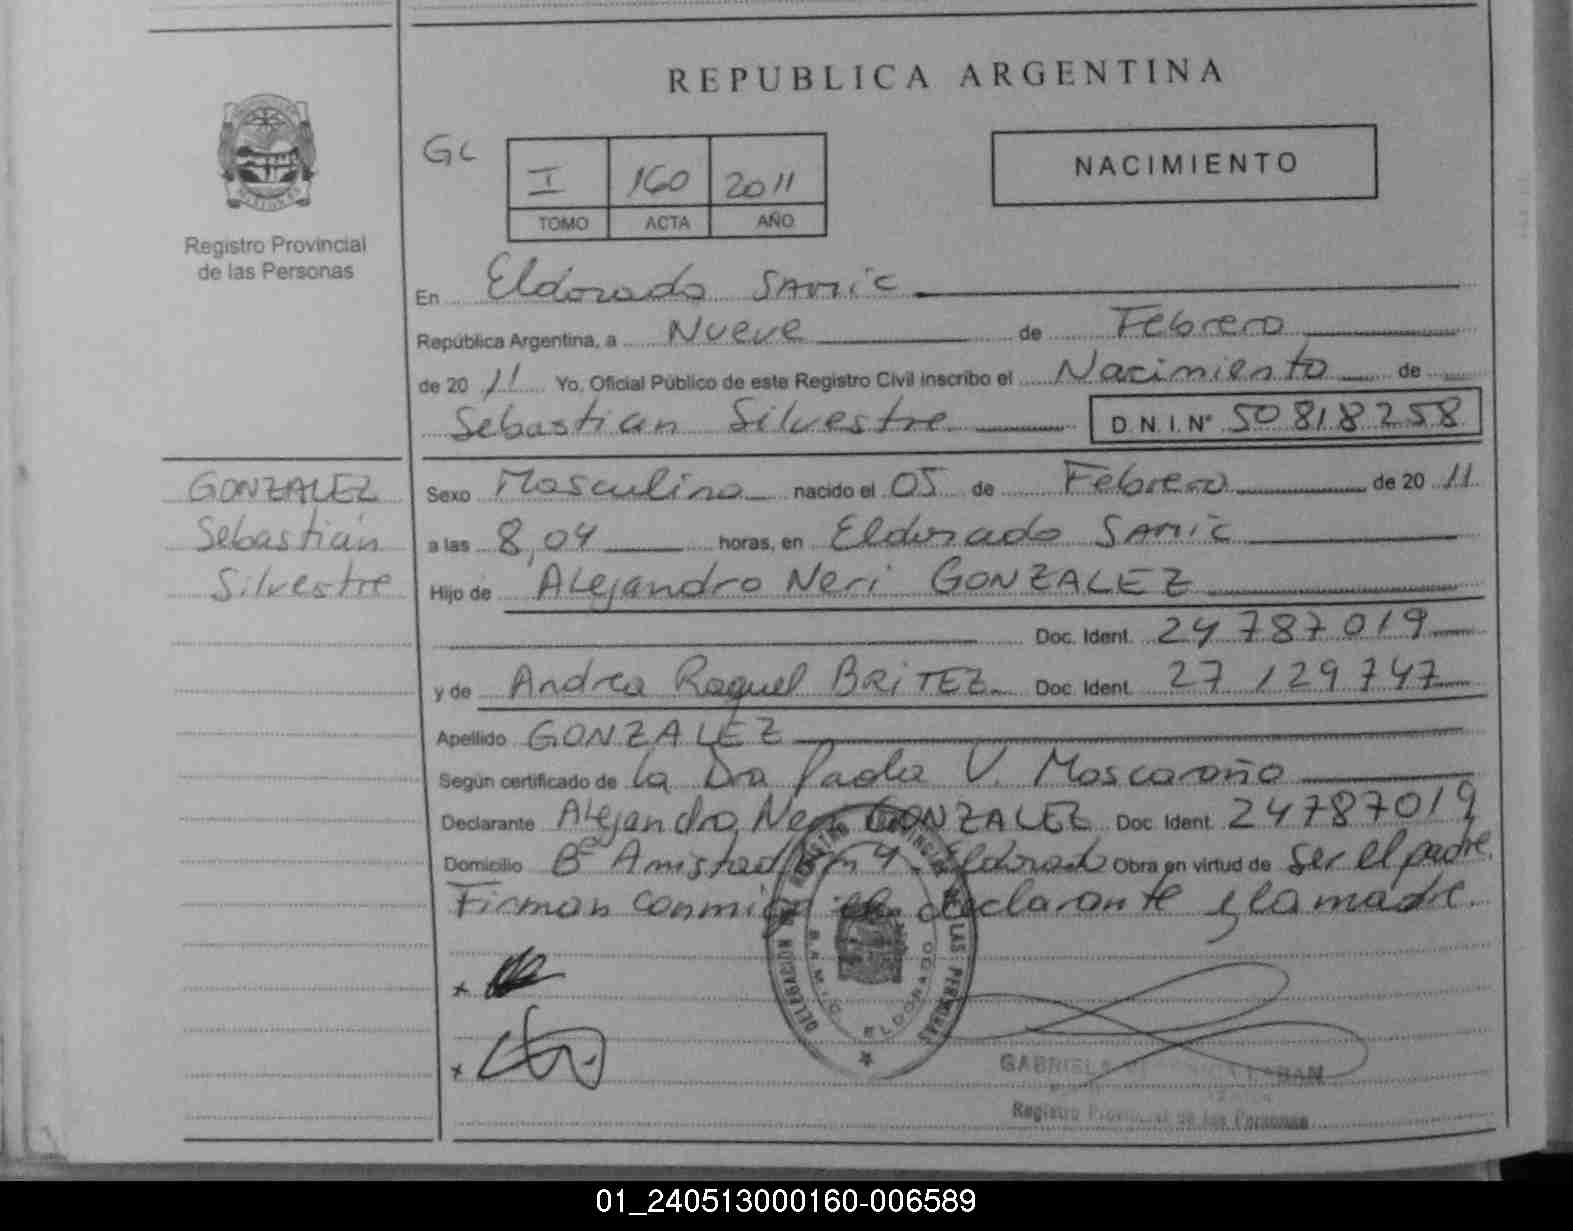 REPUBLICA ARGENTINA
Registro Provincial
de las Personas
GC
I 160 2011
TOMO ACTA AÑO
NACIMIENTO
En Eldorado SAMIC
República Argentina, a Nueve de Febrero
de 20 11 Yo, Oficial Público de este Registro Civil inscribo el Nacimiento de
Sebastian Silvestre D.N.I. Nº 50818258
GONZALEZ
Sebastián
Silvestre
Sexo Masculino nacido el 05 de Febrero de 20 11
a las 8,04 horas, en Eldorado SAMIC
Hijo de Alejandro Neri GONZALEZ
Doc. Ident. 24787019
y de Andrea Raquel BRITEZ Doc. Ident. 27129747
Apellido GONZALEZ
Según certificado de la Dra Paola V. Moscaroño
Declarante Alejandro Neri GONZALEZ Doc. Ident. 24787019
Domicilio Bº Amistad Km 4. Eldorado Obra en virtud de ser el padre.
Firman conmigo el declarante y la madre.
DELEGACION DE REGISTRO PROVINCIAL DE LAS PERSONAS
S.A.M.I.C. ELDORADO
GABRIELA
Registro Provincial de las Personas
01_240513000160-006589